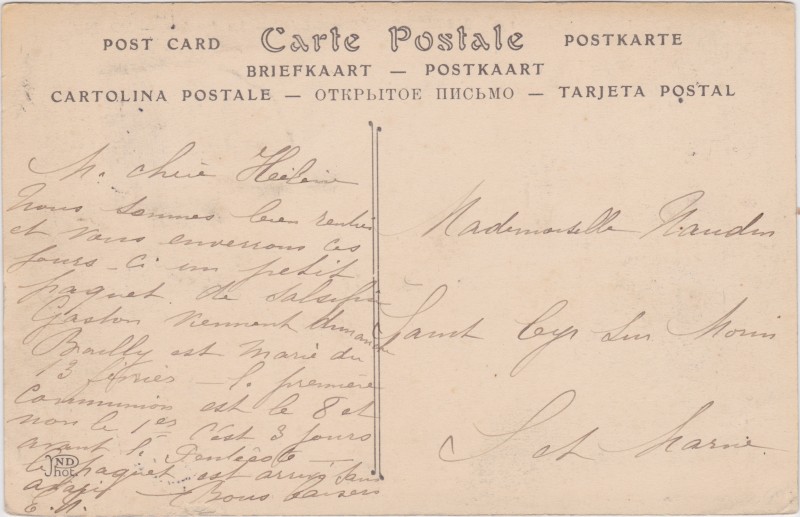 POST CARD Carte Postale POSTKARTE
BRIEFKAART — POSTKAART
CARTOLINA POSTALE — ОТКРЫТОЕ ПИСЬМО — TARJETA POSTAL
M. chère Hélène
Nous sommes bien rentrés
et vous enverrons ces
jours-ci un petit
paquet de salsifis
Gaston viennent dimanche
Bailly est marié du
13 février — la première
communion est le 8 et
non le 1er c'est 3 jours
avant la Pentecôte
le paquet est arrivé sans
Bons baisers
E. N.
ND
Phot.
Mademoiselle Naudin
Saint Cyr sur Morin
S et Marne